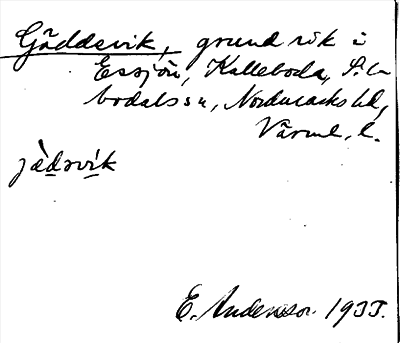 Gäddevik, grund vik i
Essjön, Kalleboda, Sil-
bodals sn, Nordmarks hd,
Värml. l.
jädsvik
E. Andersson 1933.